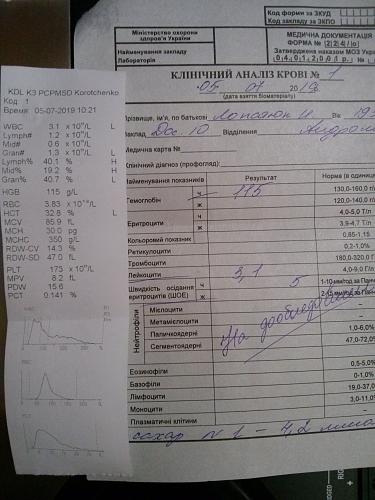 KDL K3 PCPM5D Korotchenko
Код: 1
Время: 05-07-2019 10:21
WBC 3.1 x 10⁹/L L
Lymph# 1.2 x 10⁹/L
Mid# 0.6 x 10⁹/L
Gran# 1.3 x 10⁹/L L
Lymph% 40.1 % H
Mid% 19.2 % H
Gran% 40.7 % L
HGB 115 g/L
RBC 3.83 x 10¹²/L
HCT 32.8 % L
MCV 85.9 fL
MCH 30.0 pg
MCHC 350 g/L
RDW-CV 14.3 %
RDW-SD 47.0 fL
PLT 173 x 10⁹/L
MPV 8.2 fL
PDW 15.6
PCT 0.141 %
WBC
RBC
PLT
Міністерство охорони
здоров'я України
Найменування закладу
Лабораторія
Код форми за ЗКУД
Код закладу за ЗКПО
МЕДИЧНА ДОКУМЕНТАЦІЯ
ФОРМА № 224/о
Затверджена наказом МОЗ України
04.01.2001р. №
КЛІНІЧНИЙ АНАЛІЗ КРОВІ № 1
05 07 2019
(дата взяття біоматеріалу)
Прізвище, ім'я, по батькові
Заклад Відділення
Медична карта №
Клінічний діагноз (профогляд):
Найменування показників Результат Норма (в одиницях
Гемоглобін ч 115 130,0-160,0 г/л
ж 120,0-140,0 г/л
Еритроцити ч 4,0-5,0 Т/л
ж 3,9-4,7 Т/л
Кольоровий показник 0,85-1,15
Ретикулоцити 0,2-1,0%
Тромбоцити 180,0-320,0 Г
Лейкоцити 3,1 4,0-9,0 Г/л
Швидкість осідання еритроцитів (ШОЕ) ч 5 1-10 мм/год за Панч
ж 2-15 мм/год за Панч
Нейтрофіли
Мієлоцити
Метамієлоцити
Паличкоядерні 1,0-6,0%
Сегментоядерні 47,0-72,0%
На дообследование
Еозинофіли 0,5-5,0%
Базофіли 0-1,0%
Лімфоцити 19,0-37,0
Моноцити 3,0-11,0%
Плазматичні клітини
сахар N 1 – 4,2 ммол